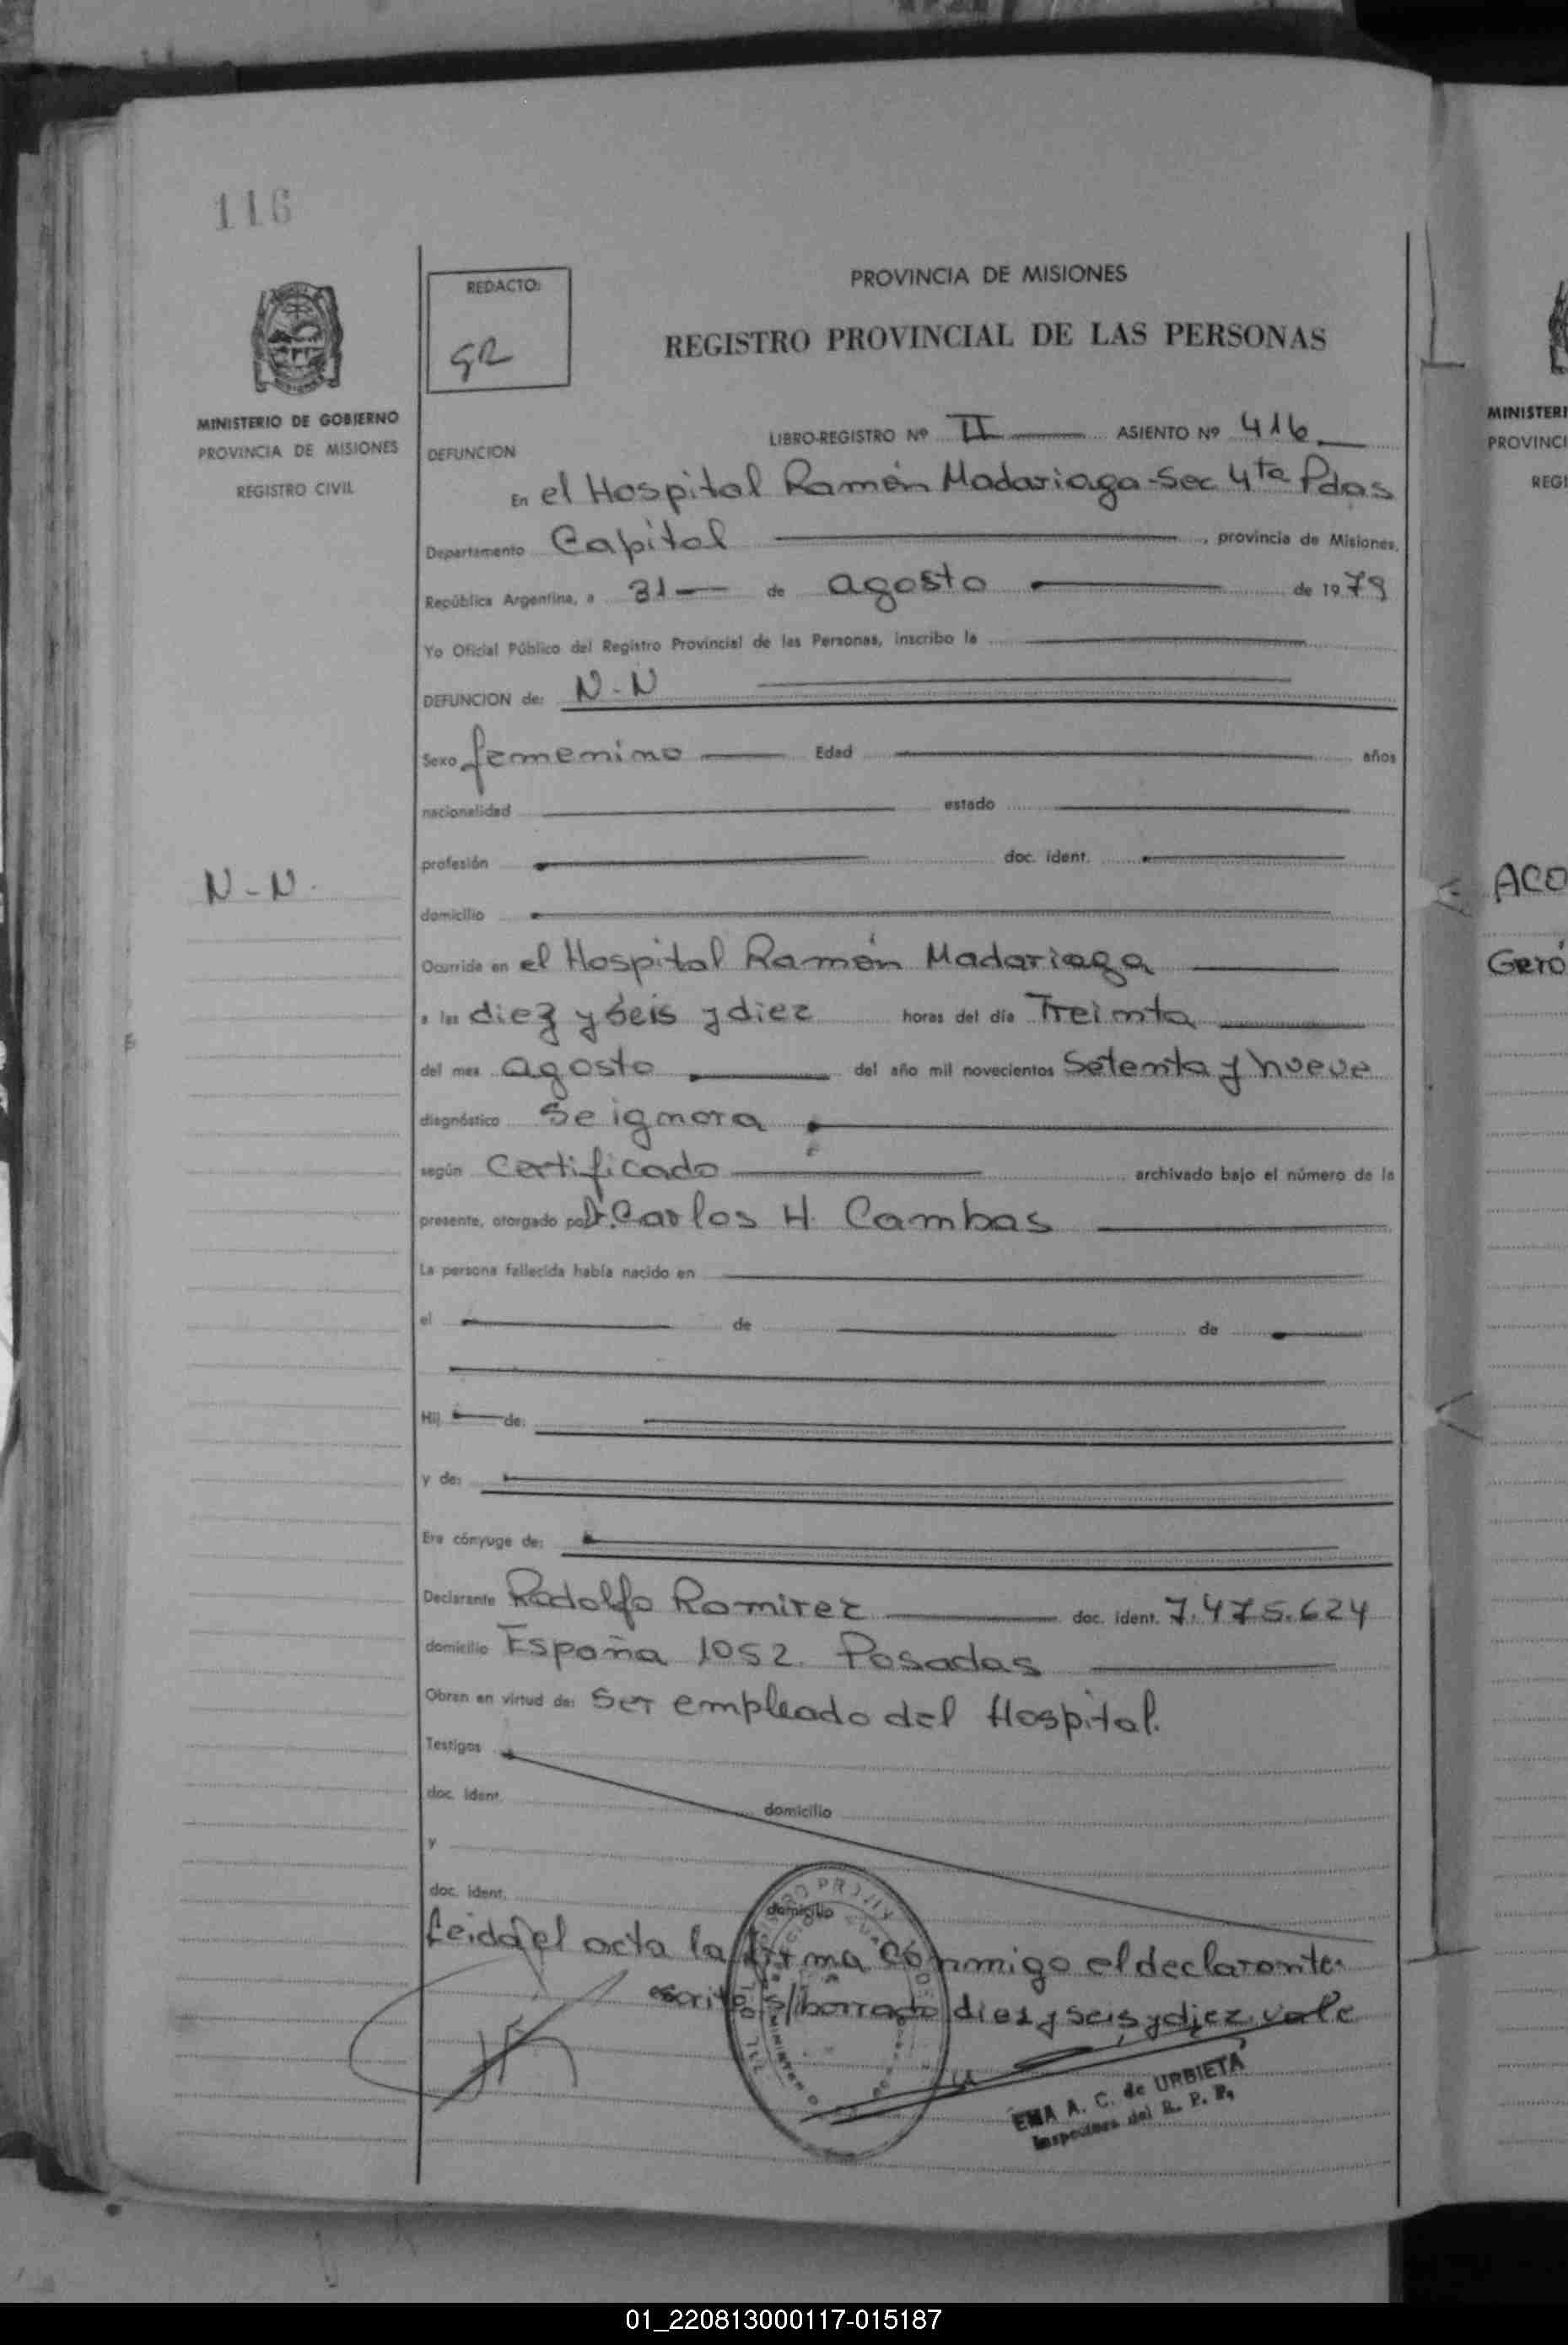 116
REDACTO:
GR
PROVINCIA DE MISIONES
REGISTRO PROVINCIAL DE LAS PERSONAS
MINISTERIO DE GOBIERNO
PROVINCIA DE MISIONES
REGISTRO CIVIL
LIBRO-REGISTRO Nº II ASIENTO Nº 416
DEFUNCION
En el Hospital Ramón Madariaga-Sec 4ta Pdas
Departamento Capital , provincia de Misiones,
República Argentina, a 31 de agosto de 1979
Yo Oficial Público del Registro Provincial de las Personas, inscribo la
DEFUNCION de: N-N
Sexo femenino Edad años
nacionalidad estado
profesión doc. ident.
N-N.
domicilio
Ocurrida en el Hospital Ramón Madariaga
a las diez y seis y diez horas del día Treinta
del mes agosto del año mil novecientos Setenta y nueve
diagnóstico Se ignora
según Certificado archivado bajo el número de la
presente, otorgado por Dr. Carlos H. Cambas
La persona fallecida había nacido en
el de de
Hij de:
y de:
Era cónyuge de:
Declarante Rodolfo Ramirez doc. ident. 7.475.624
domicilio España 1052. Posadas
Obran en virtud de: Ser empleado del Hospital.
Testigos
doc. ident. domicilio
y
doc. ident. domicilio
Leida el acta la firma conmigo el declarante.
escrito s/borrado diez y seis y diez vale
EMA A. C. de URBIETA
Inspectora del R. P. P.
MINISTERI
PROVINCI
REGI
ACO
Geró
01_220813000117-015187